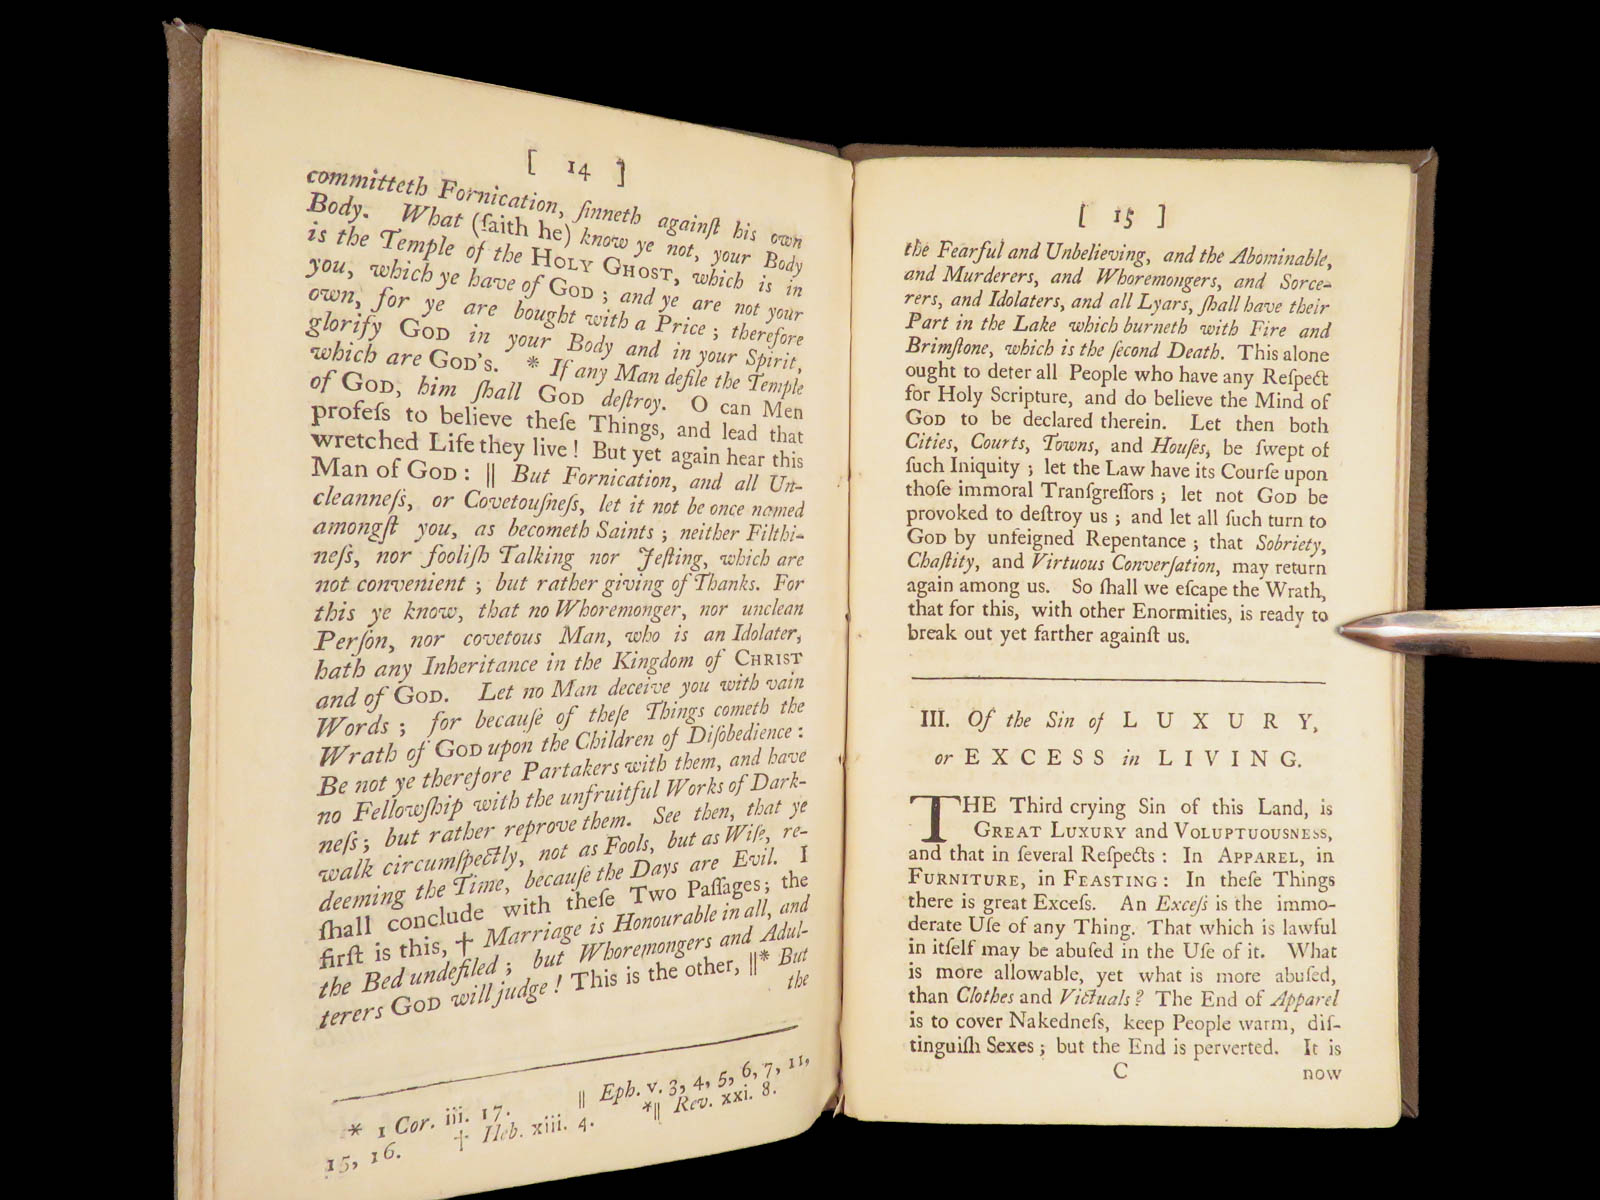 [ 14 ]
committeth Fornication, ſinneth againſt his own
Body. What (ſaith he) know ye not, your Body
is the Temple of the HOLY GHOST, which is in
you, which ye have of GOD ; and ye are not your
own, for ye are bought with a Price ; therefore
glorify GOD in your Body and in your Spirit,
which are GOD'S. * If any Man defile the Temple
of GOD, him ſhall GOD deſtroy. O can Men
profeſs to believe theſe Things, and lead that
wretched Life they live ! But yet again hear this
Man of GOD : || But Fornication, and all Un-
cleanneſs, or Covetouſneſs, let it not be once named
amongſt you, as becometh Saints ; neither Filthi-
neſs, nor fooliſh Talking nor Jeſting, which are
not convenient ; but rather giving of Thanks. For
this ye know, that no Whoremonger, nor unclean
Perſon, nor covetous Man, who is an Idolater,
hath any Inheritance in the Kingdom of CHRIST
and of GOD. Let no Man deceive you with vain
Words ; for becauſe of theſe Things cometh the
Wrath of GOD upon the Children of Diſobedience :
Be not ye therefore Partakers with them, and have
no Fellowſhip with the unfruitful Works of Dark-
neſs ; but rather reprove them. See then, that ye
walk circumſpectly, not as Fools, but as Wiſe, re-
deeming the Time, becauſe the Days are Evil. I
ſhall conclude with theſe Two Paſſages ; the
firſt is this, † Marriage is Honourable in all, and
the Bed undefiled ; but Whoremongers and Adul-
terers GOD will judge ! This is the other, ||* But
the
* 1 Cor. iii. 17. || Eph. v. 3, 4, 5, 6, 7, 11,
15, 16. † Heb. xiii. 4. *|| Rev. xxi. 8.
[ 15 ]
the Fearful and Unbelieving, and the Abominable,
and Murderers, and Whoremongers, and Sorce-
rers, and Idolaters, and all Lyars, ſhall have their
Part in the Lake which burneth with Fire and
Brimſtone, which is the ſecond Death. This alone
ought to deter all People who have any Reſpect
for Holy Scripture, and do believe the Mind of
GOD to be declared therein. Let then both
Cities, Courts, Towns, and Houſes, be ſwept of
ſuch Iniquity ; let the Law have its Courſe upon
thoſe immoral Tranſgreſſors ; let not GOD be
provoked to deſtroy us ; and let all ſuch turn to
GOD by unfeigned Repentance ; that Sobriety,
Chaſtity, and Virtuous Converſation, may return
again among us. So ſhall we eſcape the Wrath,
that for this, with other Enormities, is ready to
break out yet farther againſt us.
III. Of the Sin of LUXURY,
or EXCESS in LIVING.
THE Third crying Sin of this Land, is
GREAT LUXURY and VOLUPTUOUSNESS,
and that in ſeveral Reſpects : In APPAREL, in
FURNITURE, in FEASTING : In theſe Things
there is great Exceſs. An Exceſs is the immo-
derate Uſe of any Thing. That which is lawful
in itſelf may be abuſed in the Uſe of it. What
is more allowable, yet what is more abuſed,
than Clothes and Victuals ? The End of Apparel
is to cover Nakedneſs, keep People warm, diſ-
tinguiſh Sexes ; but the End is perverted. It is
C now